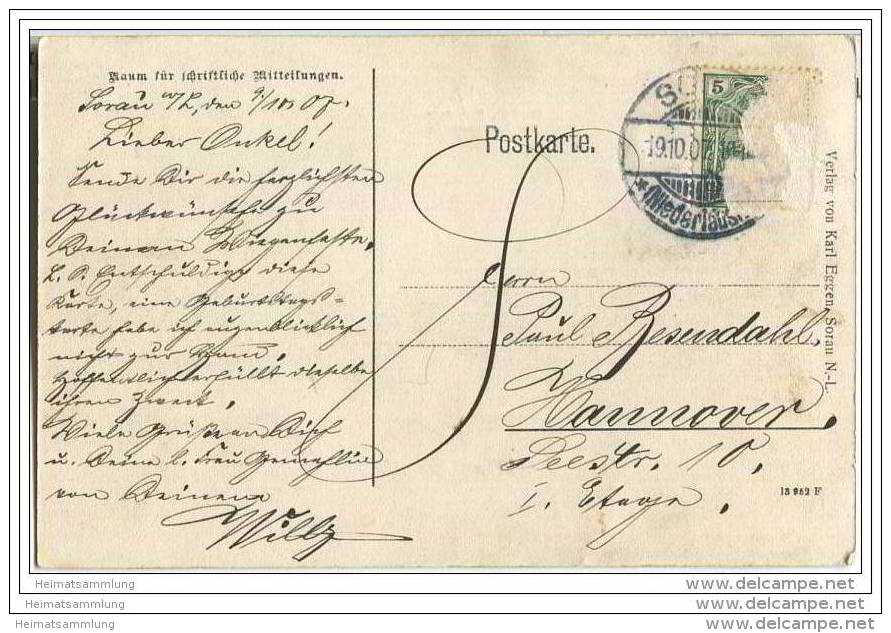 Raum für schriftliche Mitteilungen.
Sorau N/L, den 9/10 07.
Lieber Onkel!
Sende Dir die herzlichsten
Glückwünsche zu
Deinem Wiegenfeste.
L. P. Entschuldige diese
Karte, eine Geburtstags-
karte habe ich augenblicklich
nicht zur Hand.
Hoffentlich erfüllt dieselbe
ihren Zweck.
Viele Grüße an Dich
u. Deine l. Frau Gemahlin
von Deinem
Willy
Postkarte.
5
19.10.07
*(Niederlaus.
Herrn
Paul Besendahl.
Hannover.
Seestr. 10.
I. Etage.
Verlag von Karl Eggen, Sorau N-L.
13 962 F
Heimatsammlung
www.delcampe.net
Heimatsammlung
www.delcampe.net
Heimatsammlung
www.delcampe.net